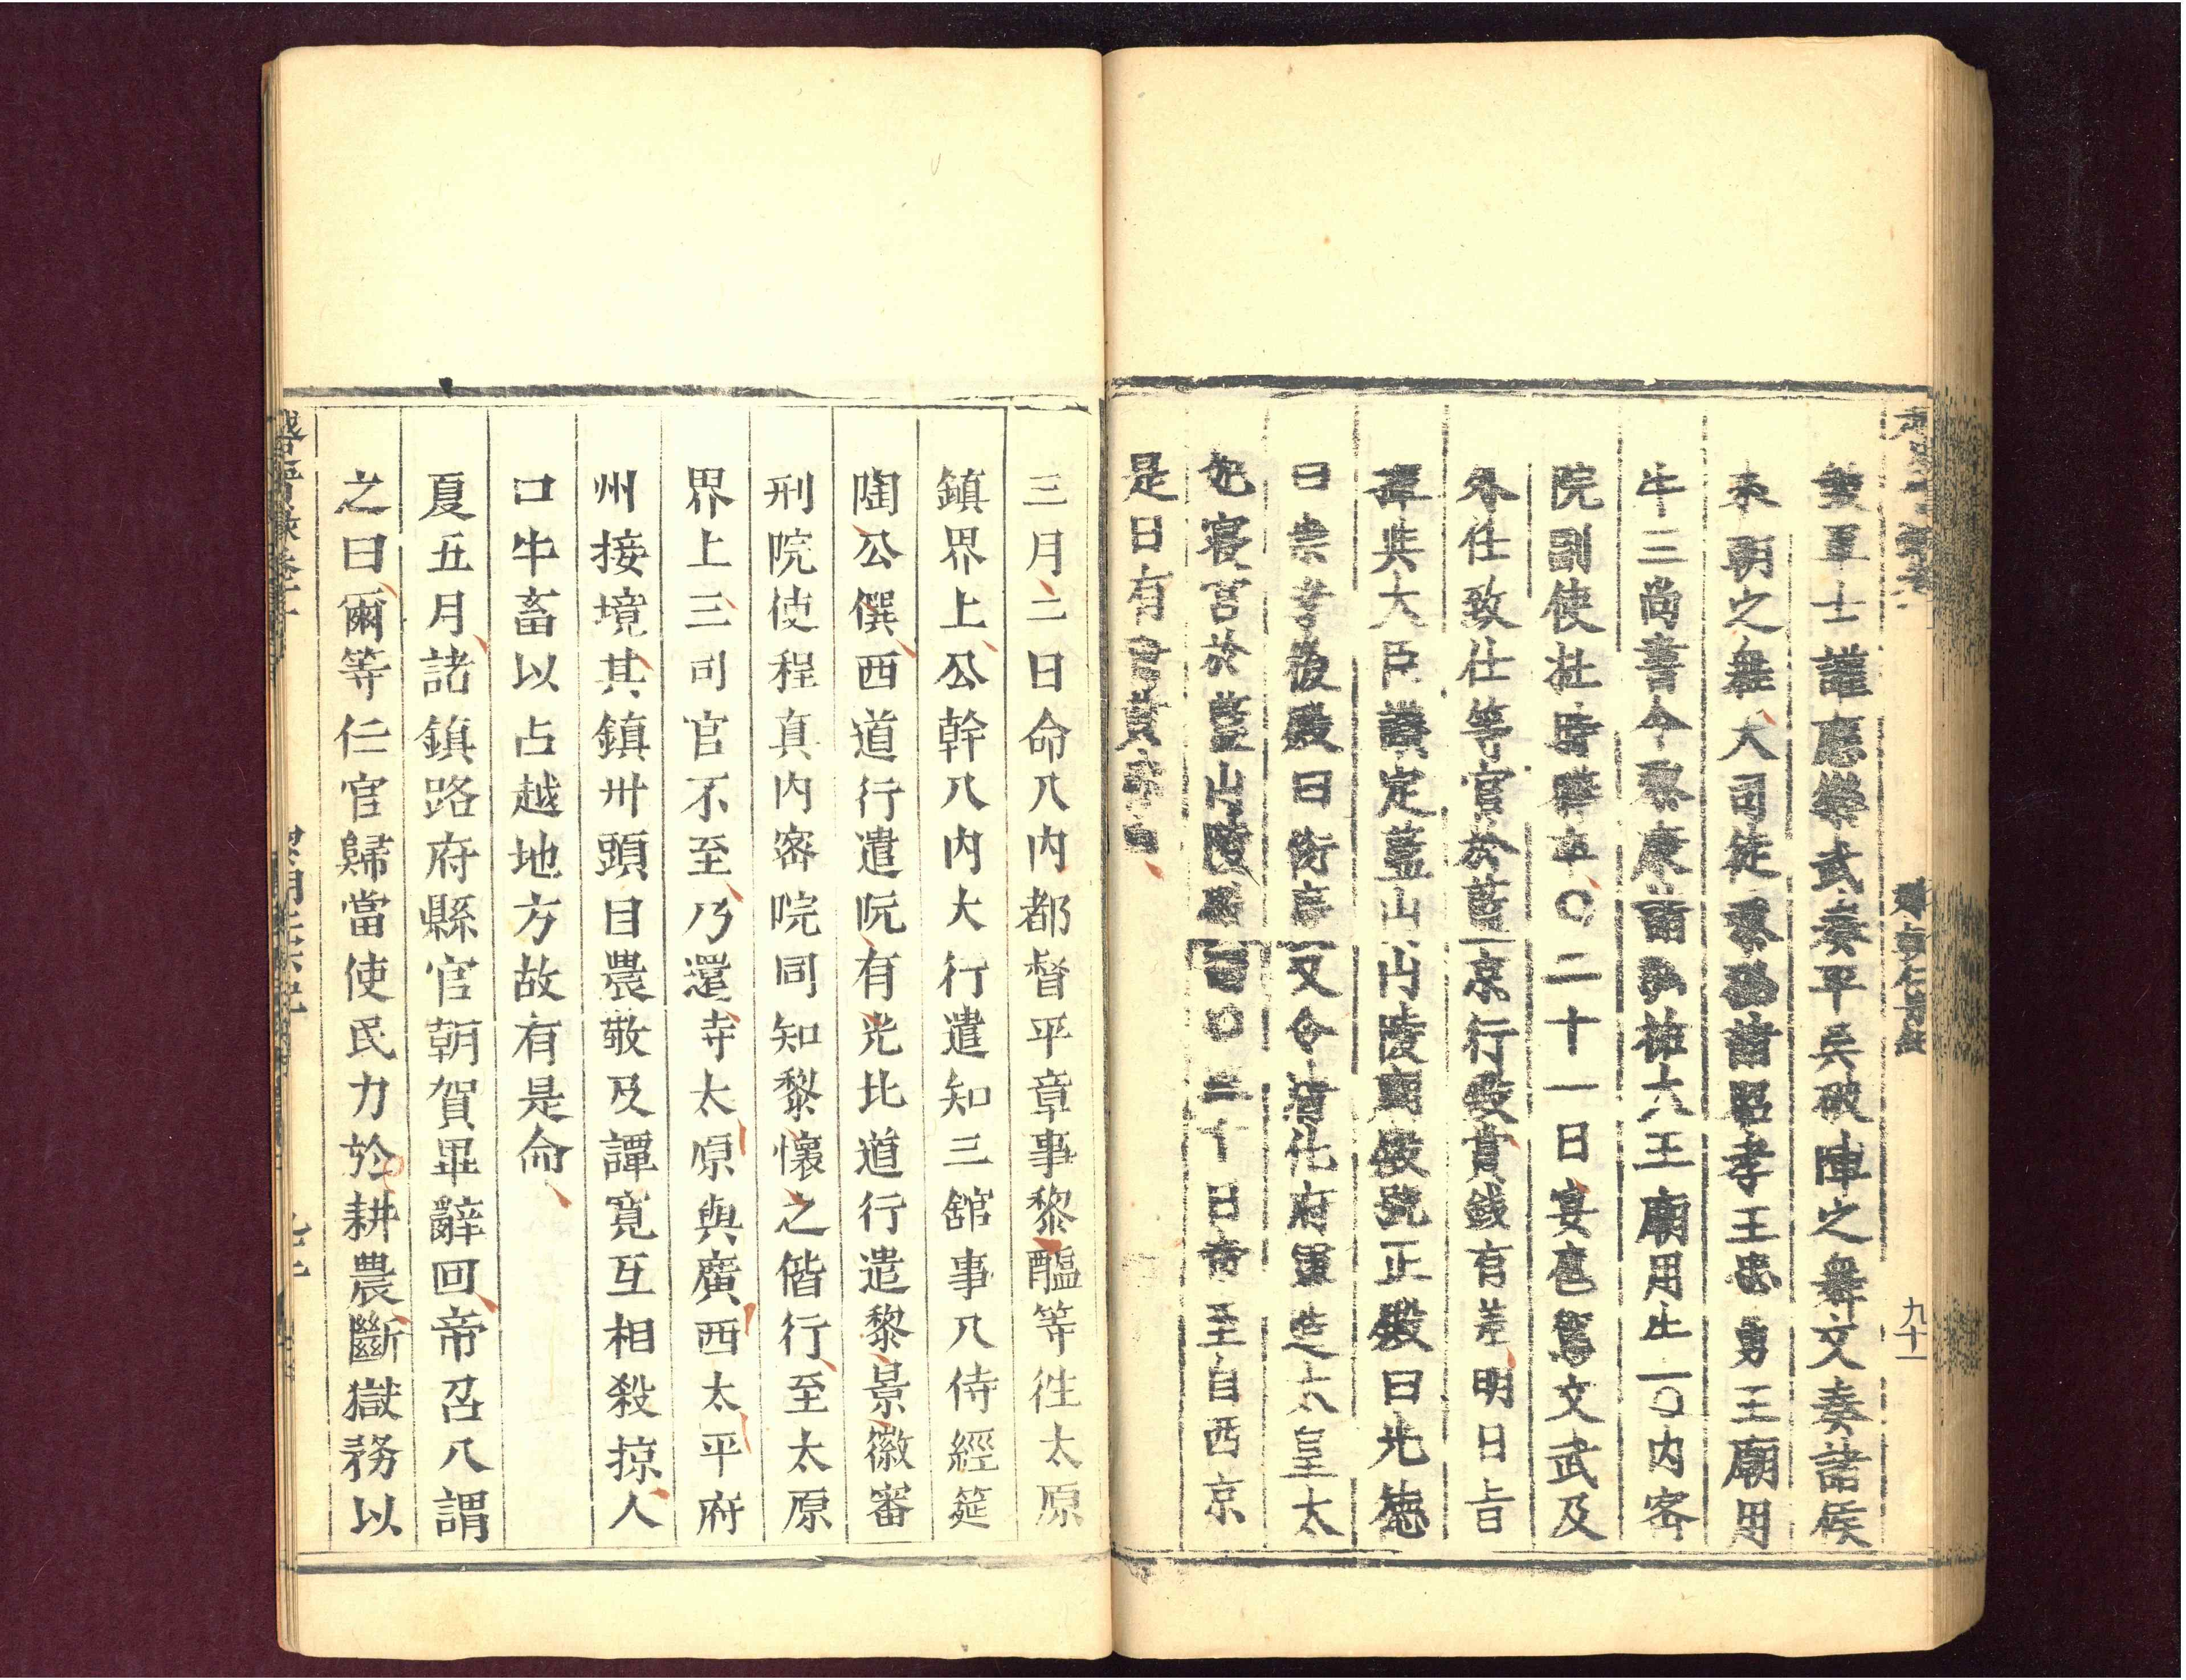 士謹應樂武奏平兵破陣之舞文奏諸侯
來朝之舞大司徒黎諸昭孝王忠勇王廟用
牛三尚書令黎康諸祐六王廟用牛一〇内密
院副使杜時曄卒〇二十一日宴扈駕文武及
外任致仕等官於藍京行殿賞錢有差明日旨
大臣議定藍山山陵廟殿號正殿曰光德
曰崇孝後殿曰衍慶又令清化府軍造太皇太
妃寢宮於藍山陵〇三十日帝至自西京
是日有黃
九十一
三月二日命入内都督平章事黎醖等往太原
鎮界上公幹入内大行遣知三舘事入侍經筵
陶公僎西道行遣阮有光北道行遣黎景徽審
刑院使程真内密院同知黎懷之偕行至太原
界上三司官不至乃還寺太原與廣西太平府
州接境其鎮卅頭目農敬及譚寬互相殺掠人
口牛畜以占越地方故有是命
夏五月諸鎮路府縣官朝賀畢辭回帝召入謂
之曰爾等仁官歸當使民力於耕農斷獄務以